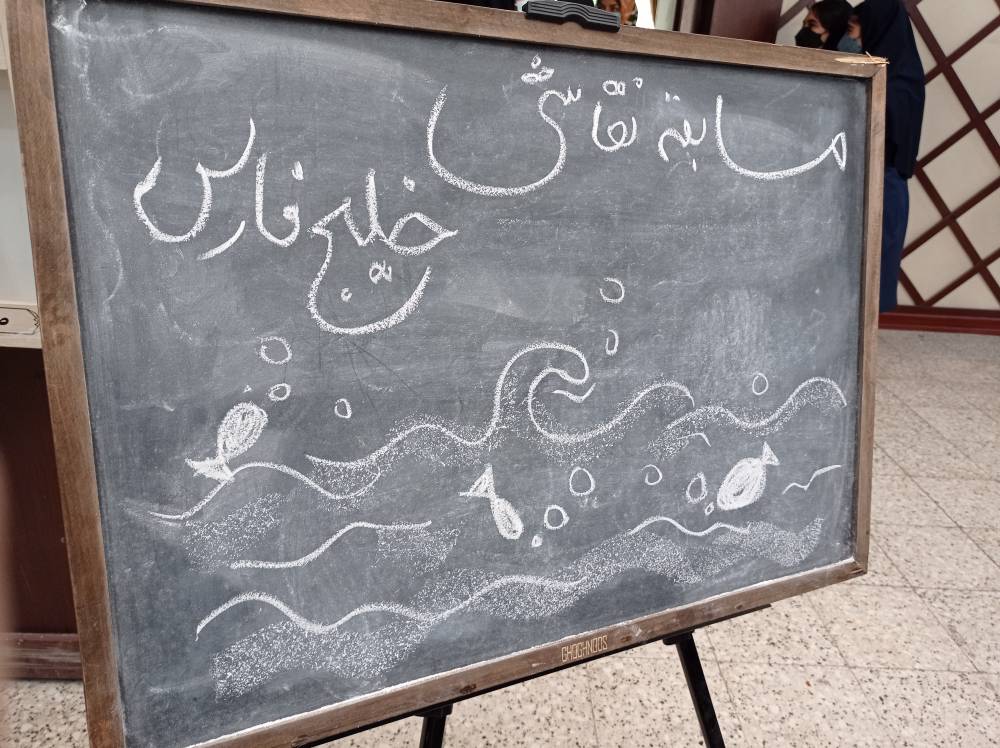 مسابقه نقاشی
خلیج فارس
GHOGHNOOS